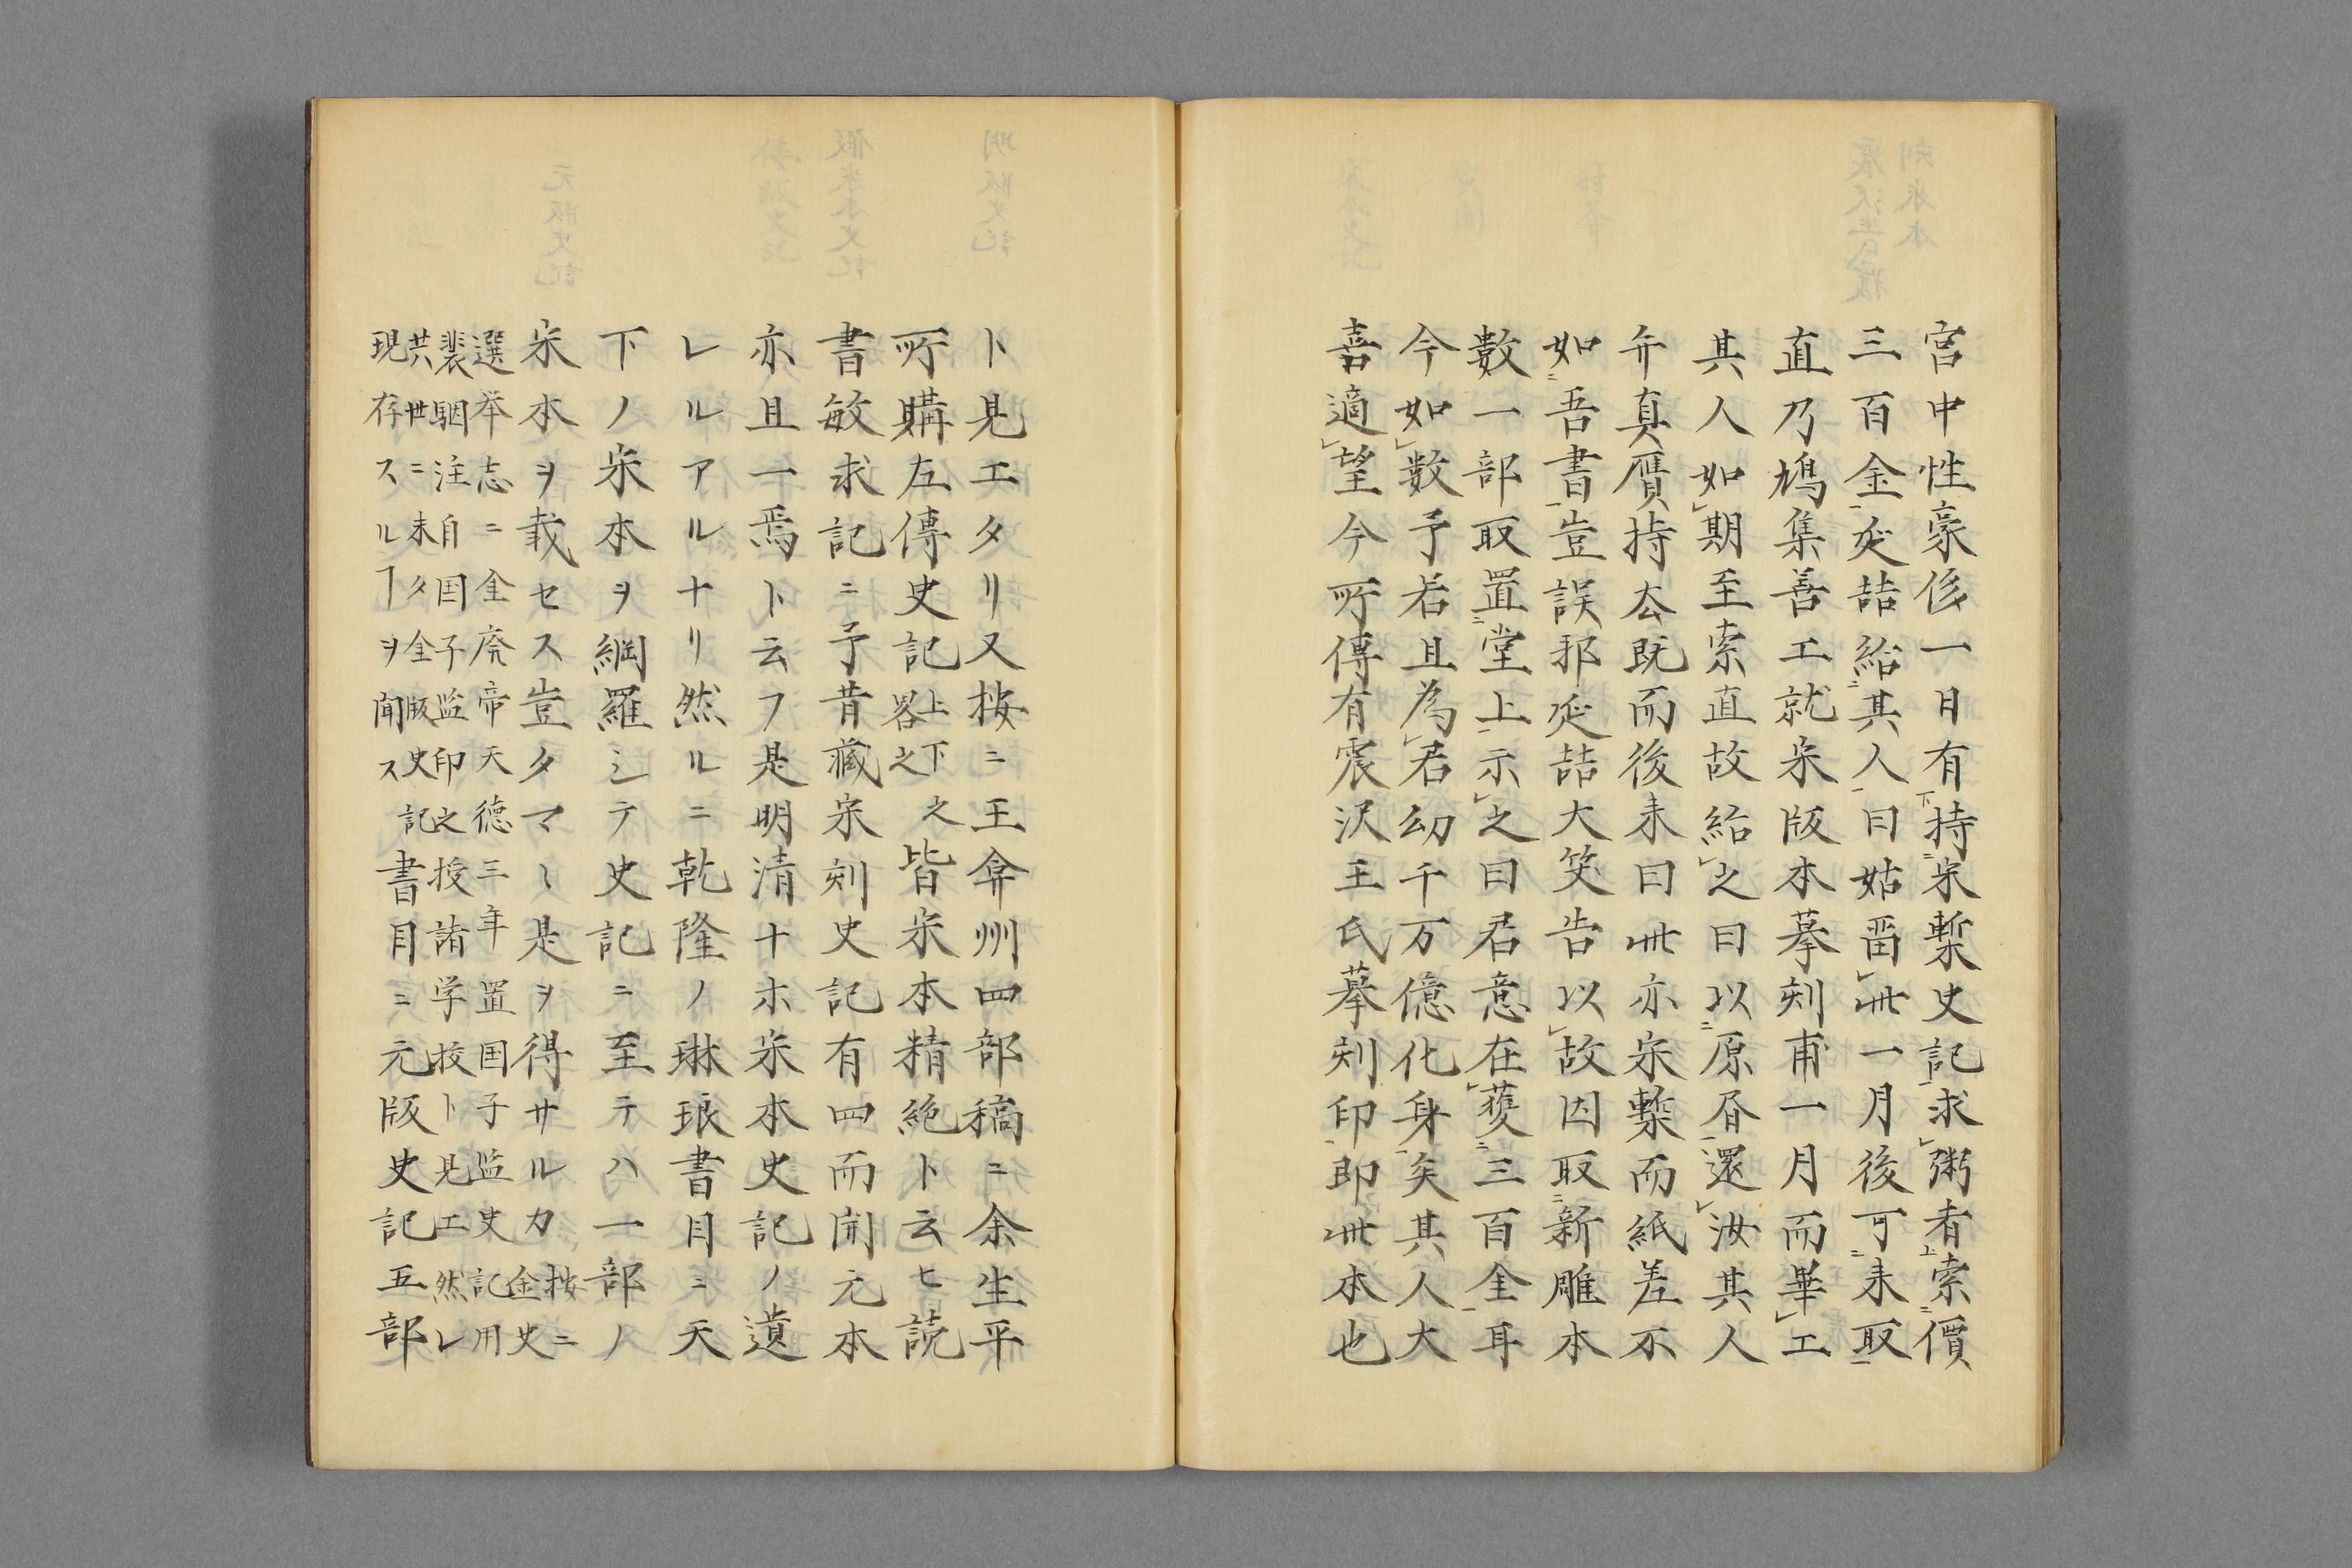 宮中性豪侈一日有持宋槧史記求粥者索價
三百金延喆紿其人曰姑畱此一月後可来取
直乃鳩集善工就宋版本摹刻甫一月而畢工
其人如期至索直故紿之曰以原昏還汝其人
弁真贋持去既而後来曰此亦宋槧而紙差不
如吾書豈誤邪延喆大笑告以故因取新雕本
數一部取置堂上示之曰君意在獲三百金耳
今如数予若且為君幻千万億化身矣其人大
喜適望今所傳有震沢王氏摹刻印即此本也
ト見エタリ又按ニ王弇州四部稿ニ余生平
所購左傳史記上下之畧之皆宋本精絶ト云ヒ読
書敏求記ニ予昔藏宋刻史記有四而開元本
亦且一焉ト云フ是明清十ホ宋本史記ノ遺
レルアルナリ然ルニ乾隆ノ琳琅書目ニ天
下ノ宋本ヲ網羅シテ史記ニ至テハ一部ノ
宋本ヲ載セス豈タマ〱是ヲ得サルカ按ニ金史
選举志ニ金廃帝天德三年置国子監史記用
裴駰注自国子監印之授諸学校ト見エ然レ
共世ニ未タ金版史記
現存スルヿヲ聞ス書目ニ元版史記五部